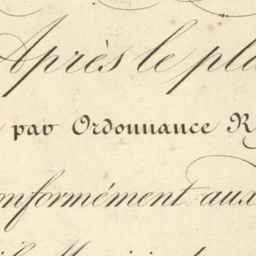 Après le pla
par Ordonnance R
onformément aux